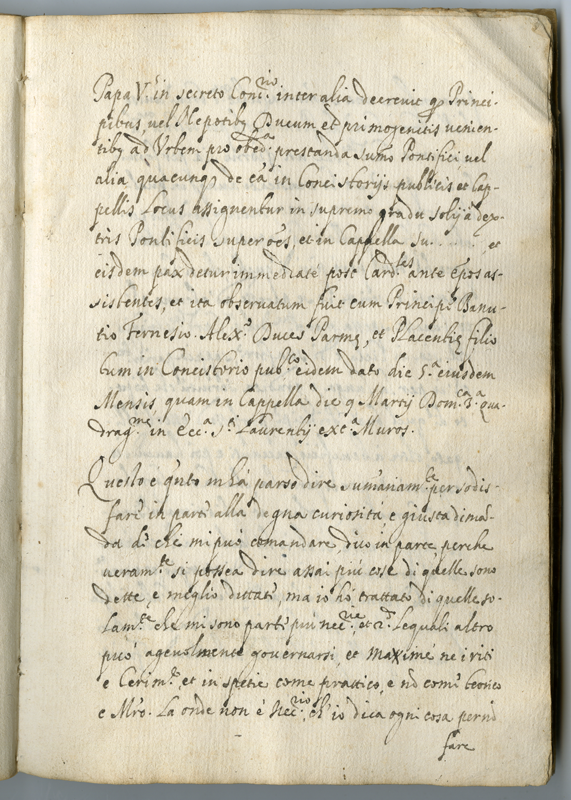 Papa V.s in secreto Conc.rio inter alia decrevit q3 Princi-
pibus, vel Nepotib3 Ducum et primogenitis venien-
tib3 ad Urbem pro obed.a prestanda sumo Pontifici vel
alia quacunq3 de cã in Concistorijs publicis et Cap-
pellis Locus assignentur in supremo gradu solij à dex-
tris Pontificis super oẽs, et in Cappella su..... et
eisdem pax detur immediatè post Card.les ante Ep̃os as-
sistentes, et ita observatum fuit cum Principe Ranu-
tio Fernesio. Alex.i Duces Parmę, et Placentię filio
tum in Concistorio pub.co eidem dato die 5.a eiusdem
Mensis quam in Cappella die 9 Martij Dom.ca 3.a Qua-
drag.me in Ecc.a S.ti Laurentij ext.a Muros.
Questo è q̃nto m'hà parso dire sumariam.te per sodis-
fare in parte alla degna curiosita, e giusta dimã-
da di chè mi può comandare, dico in parte perche
veram.te si possea dire assai più cose di quelle sono
dette, e meglio dittate, ma io hò trattato di quelle so-
lam.te che mi sono parse più nec.rie, et c.a lequali altro
può agevolmente governarsi, et maximè ne i riti
e Cerim.e, et in spetie come prattico, e nõ come teorico
e Mr̃o. La onde non è nec.rio, ch'io dica ogni cosa per nõ
fare